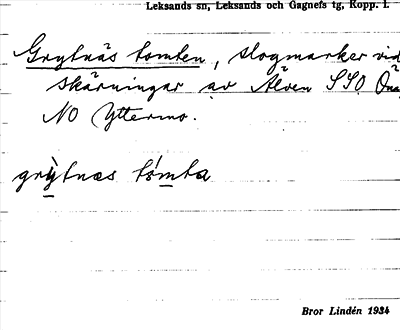 Leksands sn, Leksands och Gagnefs tg, Kopp. l.
Grytnäs tomten, slogmarker vid
skärningar av Älven SSO
NO Yttermo.
grỳtnæs tómta
Bror Lindén 1934